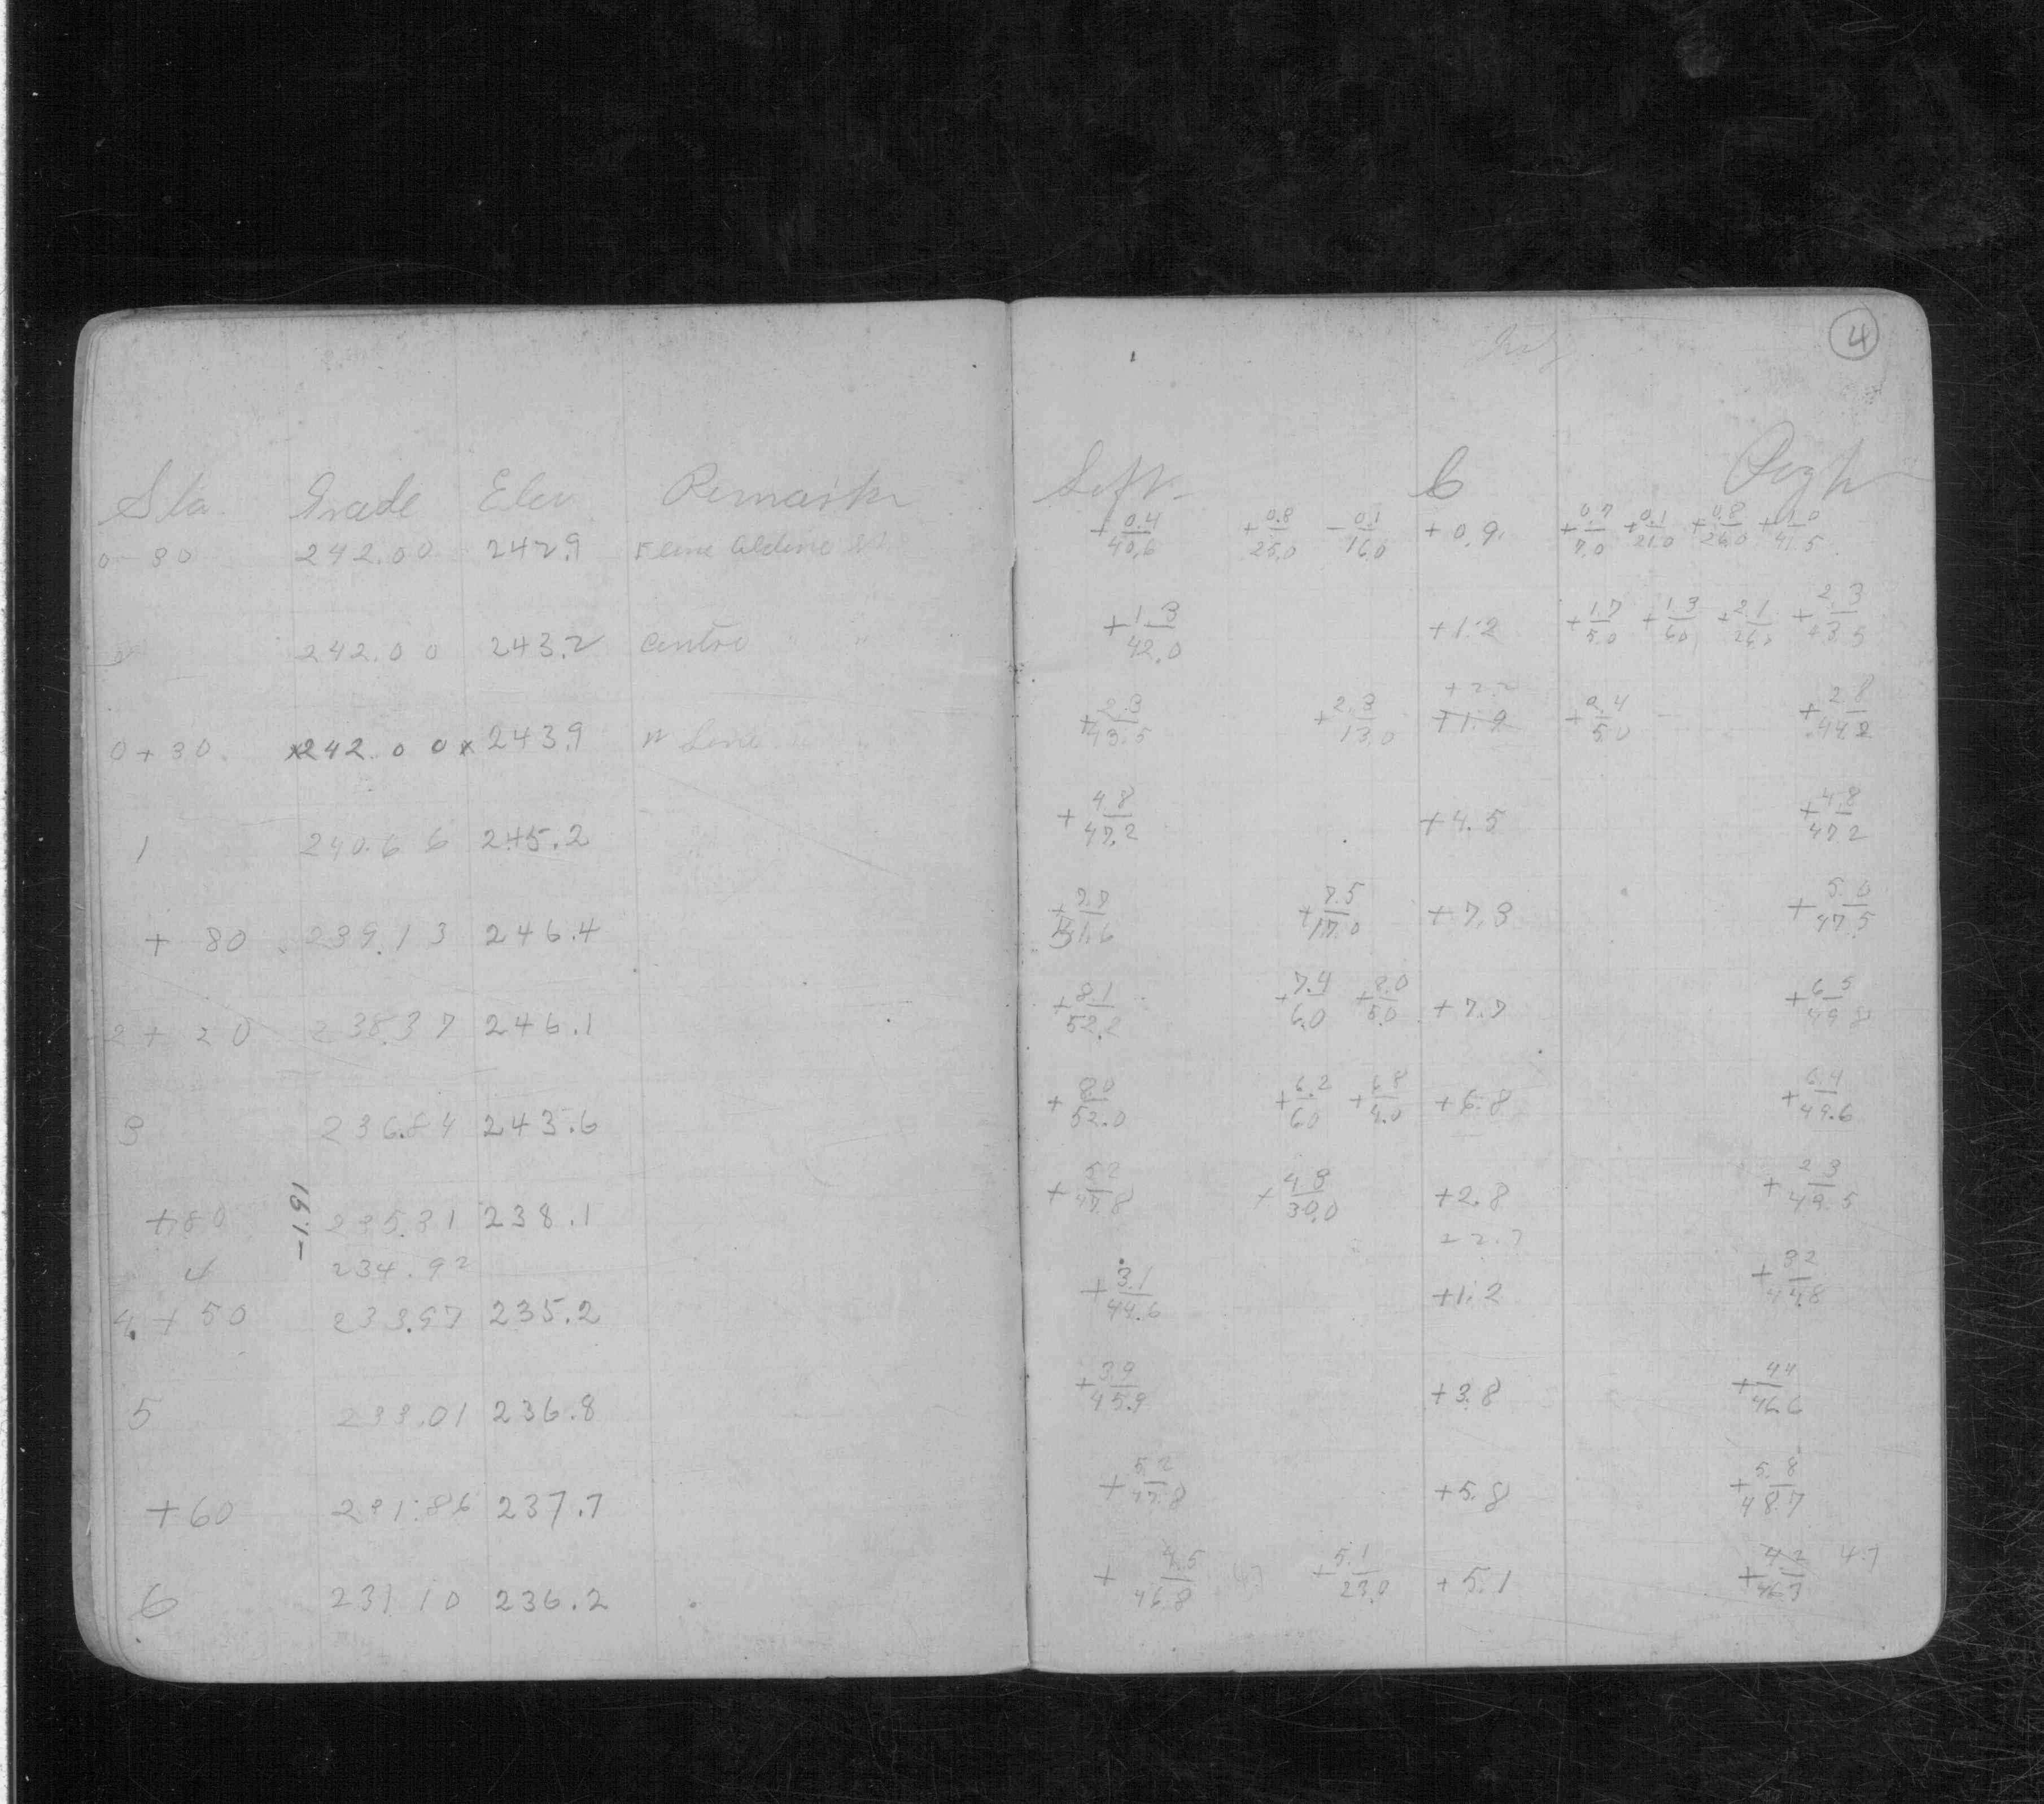 4
Sta. Grade Elev. Remarks Left C Right
0-30 242.00 242.9 Aldine +0.4/40.6 +0.8/25.0 -0.1/16.0 +0.9 +0.7/7.0 +0.1/21.0 +0.8/26.0 +1.0/41.5
242.00 243.2 Centre " " +1.3/42.0 +1.2 +1.7/5.0 +1.3/6.0 +2.1/26.0 +2.3/43.5
+2.2
0+30 x242.00x 243.9 N Line " " +2.3/43.5 +2.3/13.0 +1.9 +0.4/5.0 +2.8/44.2
1 240.66 245.2 +4.8/47.2 +4.5 +4.8/47.2
+80 239.13 246.4 +7.7/51.6 +7.5/17.0 +7.3 +5.0/47.5
2+20 238.37 246.1 +8.1/52.2 +7.4/6.0 +8.0/5.0 +7.7 +6.5/49.8
3 236.84 243.6 +8.0/52.0 +6.2/6.0 +6.8/4.0 +6.8 +6.4/49.6
+80 -1.91 235.31 238.1 +5.2/47.8 +4.8/30.0 +2.8 +2.3/43.5
4 234.92
4+50 233.97 235.2 +3.1/44.6 +1.2 +3.2/44.8
5 233.01 236.8 +3.9/45.9 +3.8 +4.4/46.6
+60 231.86 237.7 +5.2/47.8 +5.8 +5.8/48.7
6 231.10 236.2 +4.5/46.8 +5.1/23.0 +5.1 +4.2/46.3 4.7